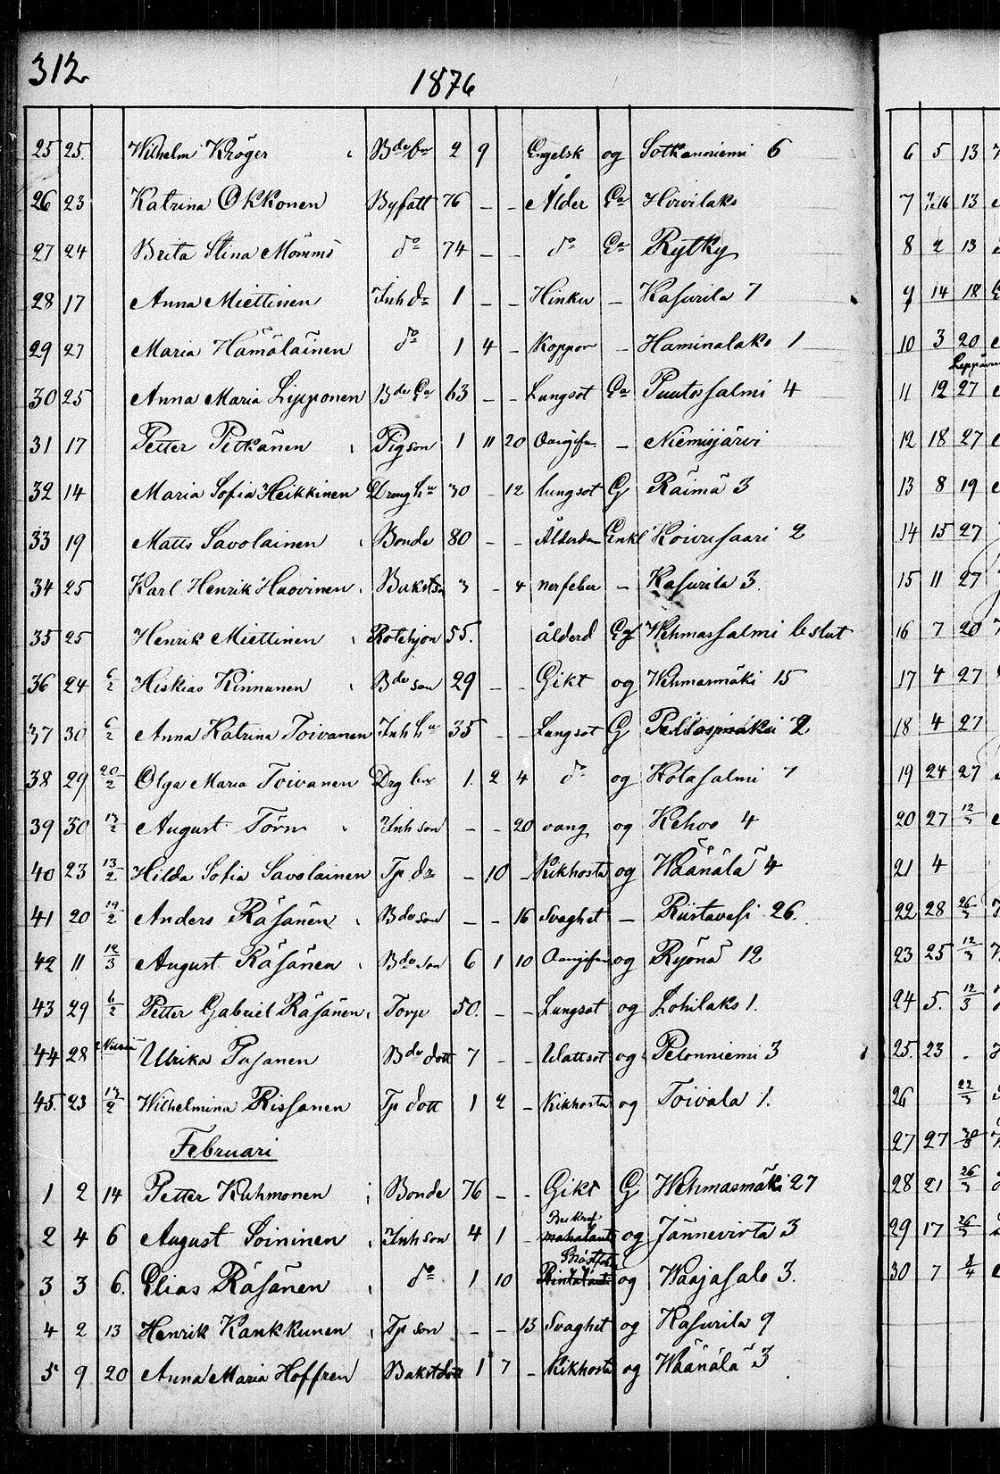 312
1876
25 25. Wilhelm Kröger Bdeson 2 9 Engelsk og Sotkanniemi 6
26 23 Katrina Okkonen Byfatt 76 - - Ålder Ea Hirvilaks
27 24 Brita Stina Mömmö do 74 - - do Ea Rytky
28 17 Anna Miettinen Inh dr 1 - - Hinku - Kasurila 7
29 27 Maria Hämäläinen do 1 4 - Koppor - Haminalaks 1
30 25 Anna Maria Lipponen Bde Ea 63 - - Lungsot Ea Puutossalmi 4
31 17 Petter Pitkänen Pigson 1 11 20 Oangifn - Niemisjärvi
32 14 Maria Sofia Heikkinen Dreng hu 30 - 12 lungsot G Räimä 3
33 19 Matts Savolainen Bonde 80 - - Ålderdom Enkl Koivusaari 2
34 25 Karl Henrik Huovinen Bakstson 3 - 4 nerfeber - Kasurila 3.
35 25 Henrik Miettinen Rotehjon 55. ålderd Eg Wehmassalmi beslut
36 24 6/2 Hiskias Kinnunen Bdeson 29 - - Gikt og Wehmasmäki 15
37 30 6/2 Anna Katrina Toivanen Inh hu 35 - - Lungsot G Peltospmäki 2
38 29 20/2 Olga Maria Toivanen Drg 1. 2 4 do og Kotasalmi 7
39 30 13/2 August Törn Inh son - - 20 vang og Kehvo 4
40 23 13/2 Hilda Sofia Savolainen Tp dr - 10 - Kikhosta og Wäänälä 4
41 20 19/2 Anders Räsänen Bdeson - - 16 Svaghet - Riistavesi 26.
42 11 12/3 August Räsänen Bdeson 6 1 10 Oangifven og Ryönä 12
43 29 6/2 Petter Gabriel Räsänen Torp 50. - - Lungsot og Lohilaks 1.
44 28 Nilsiä Ulrika Tasanen Bde dott 7 - - Wattsot og Pelonniemi 3
45. 23 13/2 Wilhelmina Rissanen Tp dott 1 2 - Kikhosta og Toivala 1.
Februari
1 2 14 Petter Kuhmonen Bonde 76 - - Gikt G Wehmasmäki 27
2 4 6 August Soininen Inhson 4 1 - og Jännevirta 3
3 3 6. Elias Räsänen do 1 10 og Waajasalo 3.
4 2 13 Henrik Kankkunen Tp son - - 13 Svaghet og Kasurila 9
5 9 20 Anna Maria Hoffren Bakstdott 1 7 - Kikhosta og Wäänälä 3
6 5 13
7 13
8 2 13
9 14 18
10 3 20
11 12 27
12 18 27
13 8 19
14 15 27
15 11 27
16 7 20
17 4 27
18 4 27
19 24 27
20 27 12/3
21 4
22 28 26/3
23 25 12/3
24 5. 12/3
25. 23 .
26 22/3
27 27 30/3
28 21 26/3
29 17 26/3
30 7 2/4